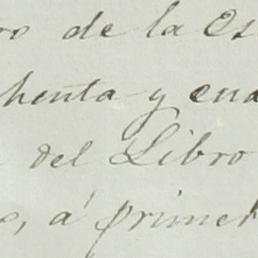 ro de la Es
henta y cua
del Libro
s, á primer